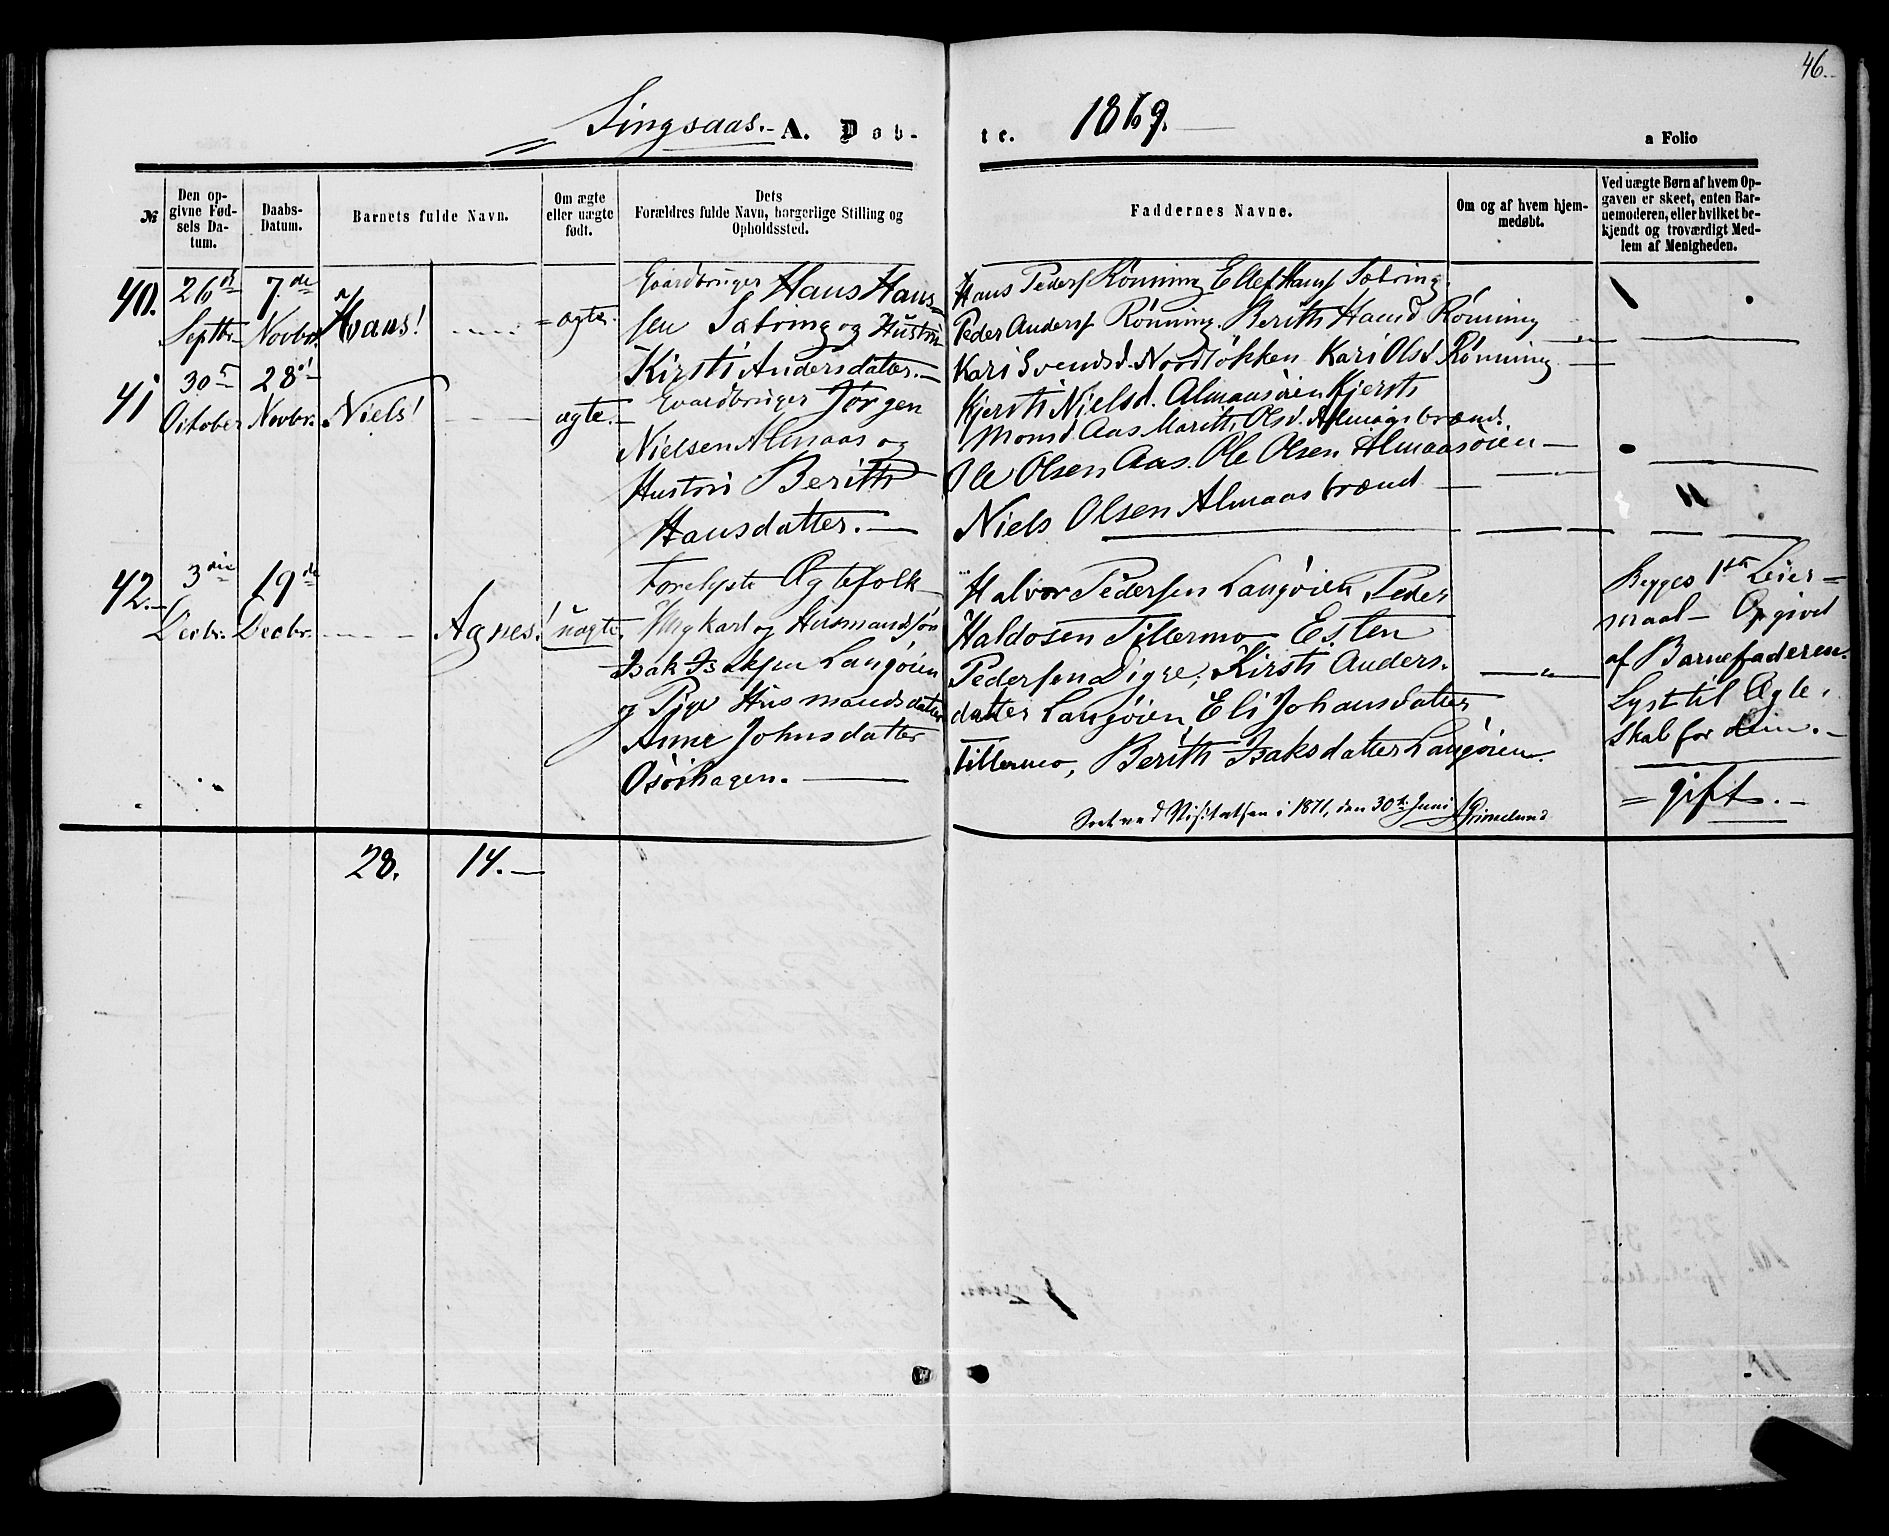 46.
Singsaas.- A. Døb-
te. 1869.
a Folio
№
Den op-
givne Fød-
sels Da-
tum.
Daabs-
Datum.
Barnets fulde Navn.
Om ægte
eller uægte
født.
Dets
Forældres fulde Navn, borgerlige Stilling og
Opholdssted.
Faddernes Navne.
Om og af hvem hjem-
medøbt.
Ved uægte Børn af hvem Op-
gaven er skeet, enten Bar-
nemoderen, eller hvilket be-
kjendt og troværdigt Med-
lem af Menigheden.
40.
26de
Septbr.
7de
Novbr.
Hans!
ægte.
Gaardbruger Hans Han-
sen Sætring og Hustru
Kirsti Andersdatter.
Hans Peders Rønning Ellef Hans Sætring.
Peder Anders Rønning. Berith Hansd Rønning
Kari Svendsd. Nordløkken Kari Olsd Rønning
41
30
October
28
Novbr.
Niels!
ægte.
Gaardbruger Jørgen
Nielsen Almaas og
Hustru Berith
Hansdatter.
Kjersti Nielsd. Almaasøien Kjersti
Monsd. Aas Marith Olsd. Almaasbrænd.
Ole Olsen Aas. Ole Olsen Almaasøien
Niels Olsen Almaasbrænd
"
42.
3die
Decbr.
19de
Decbr.
Agnes!
uægte.
Forelyste Ægtefolk
Ungkarl og Husmandssøn
Isak Isaksen Langøien
og Pige Husmandsdatter
Anne Johnsdatter
Osøihagen.
Halvor Pedersen Langøien Peder
Haldosen Tillermo Esten
Pedersen Digre; Kirsti Anders-
datter Langøien Eli Johansdatter
Tillermo, Berith Isaksdatter Langøien.
Begges 1ste Leier-
maal - Opgivet
af Barnefaderen.
Lyst til Ægte-
skab for dem.
= gift.
Seet ved Visitatsen i 1871, den 30te Juni Grimelund
28.
14.